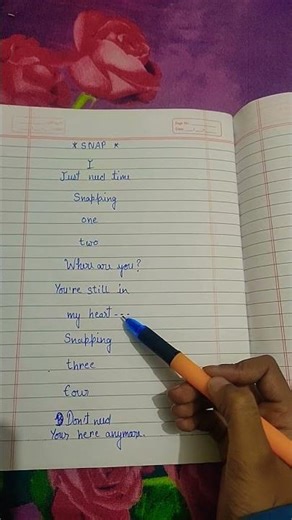 * SNAP *
I
Just need time
Snapping
one
two
Where are you?
You're still in
my heart---
Snapping
three
four
Don't need
Your here anymore.